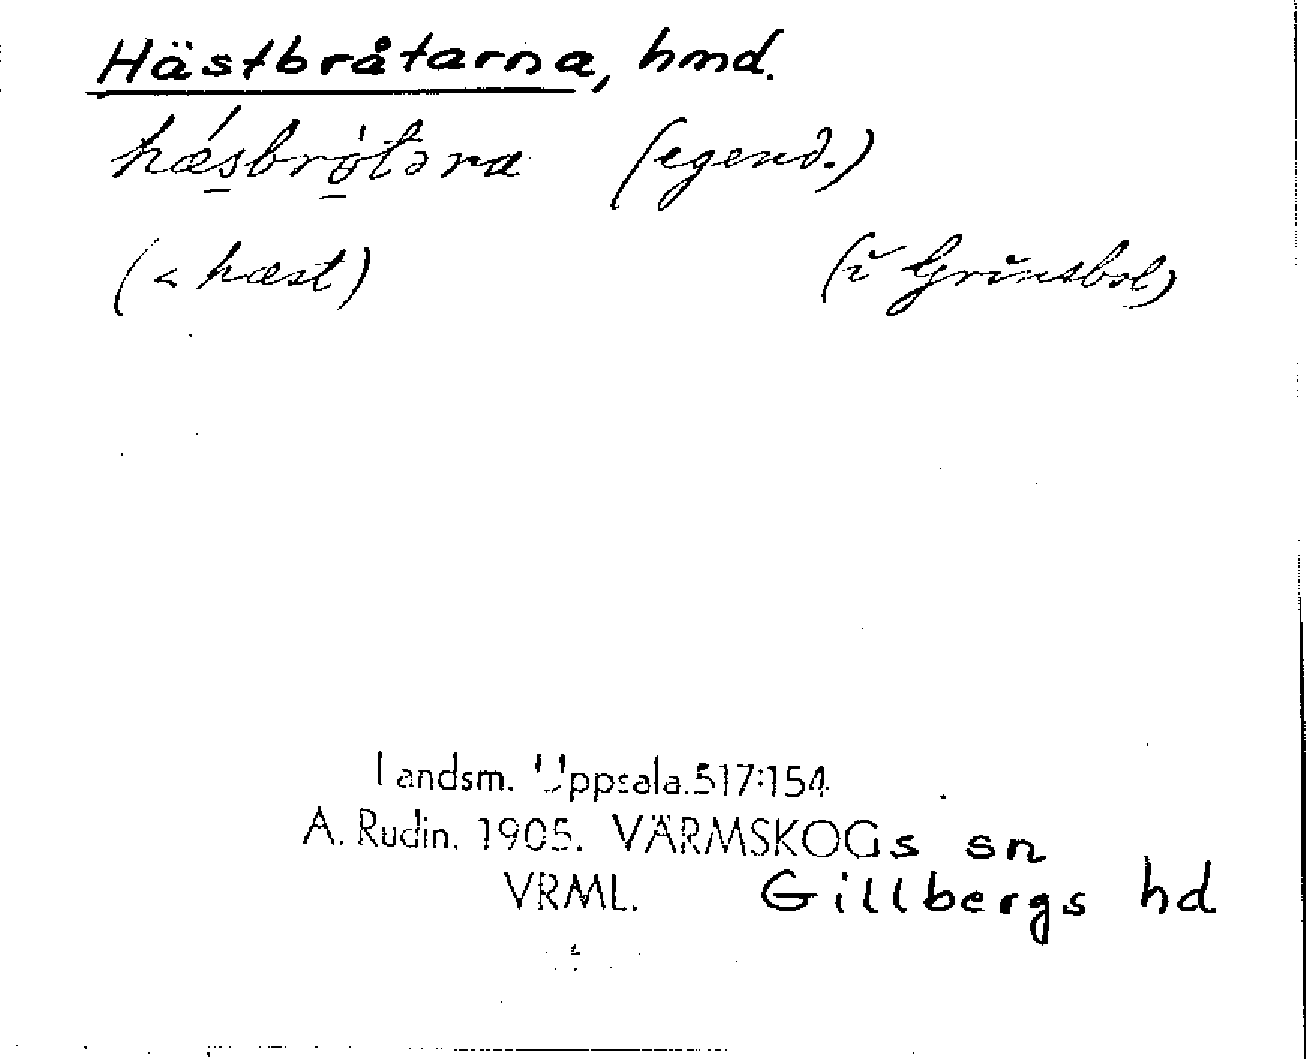 Hästbråtarna, hmd.
hǽsbròtəra (egend.)
(< hæst) (i Grinsbol)
Landsm. Uppsala.517:154
A. Rudin. 1905. VÄRMSKOGs sn
VRML. Gillbergs hd